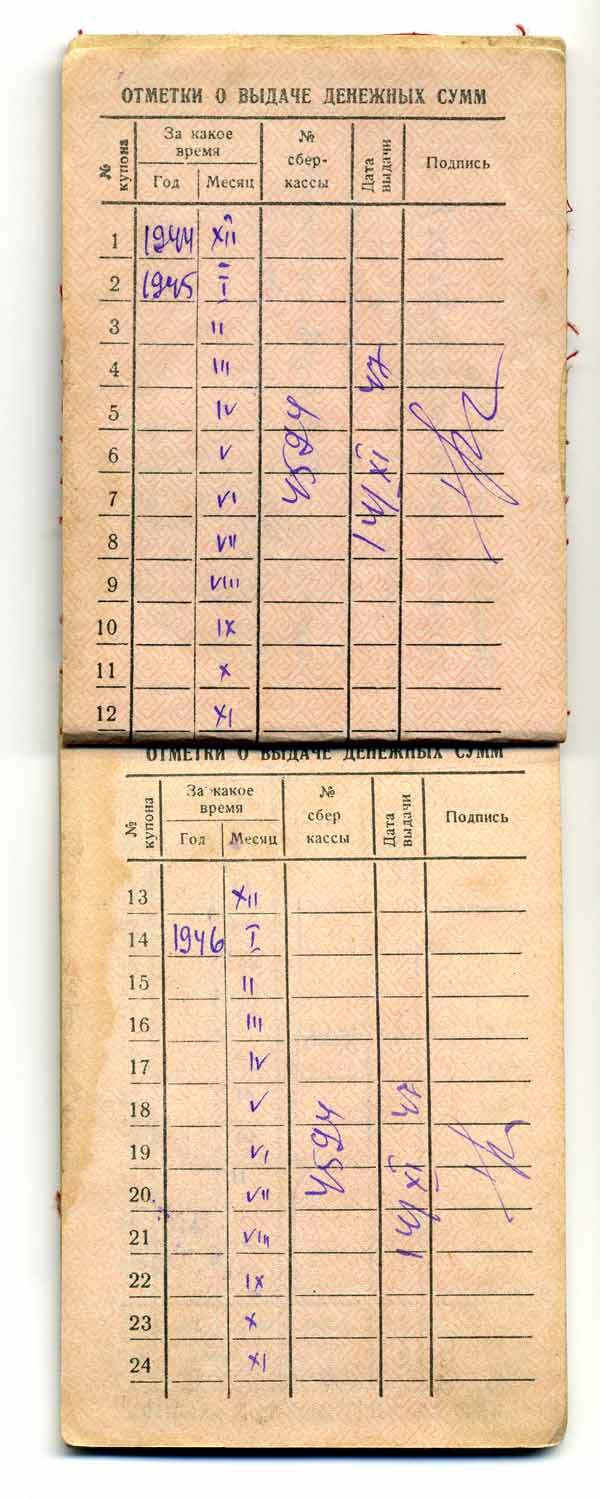 ОТМЕТКИ О ВЫДАЧЕ ДЕНЕЖНЫХ СУММ
№ купона
За какое время
Год
Месяц
№ сбер-кассы
Дата выдачи
Подпись
1 1944 XII
2 1945 I
3 II
4 III
5 IV
6 V
7 VI
8 VII
9 VIII
10 IX
11 X
12 XI
ОТМЕТКИ О ВЫДАЧЕ ДЕНЕЖНЫХ СУММ
№ купона
За какое время
Год
Месяц
№ сбер кассы
Дата выдачи
Подпись
13 XII
14 1946 I
15 II
16 III
17 IV
18 V
19 VI
20 VII
21 VIII
22 IX
23 X
24 XI